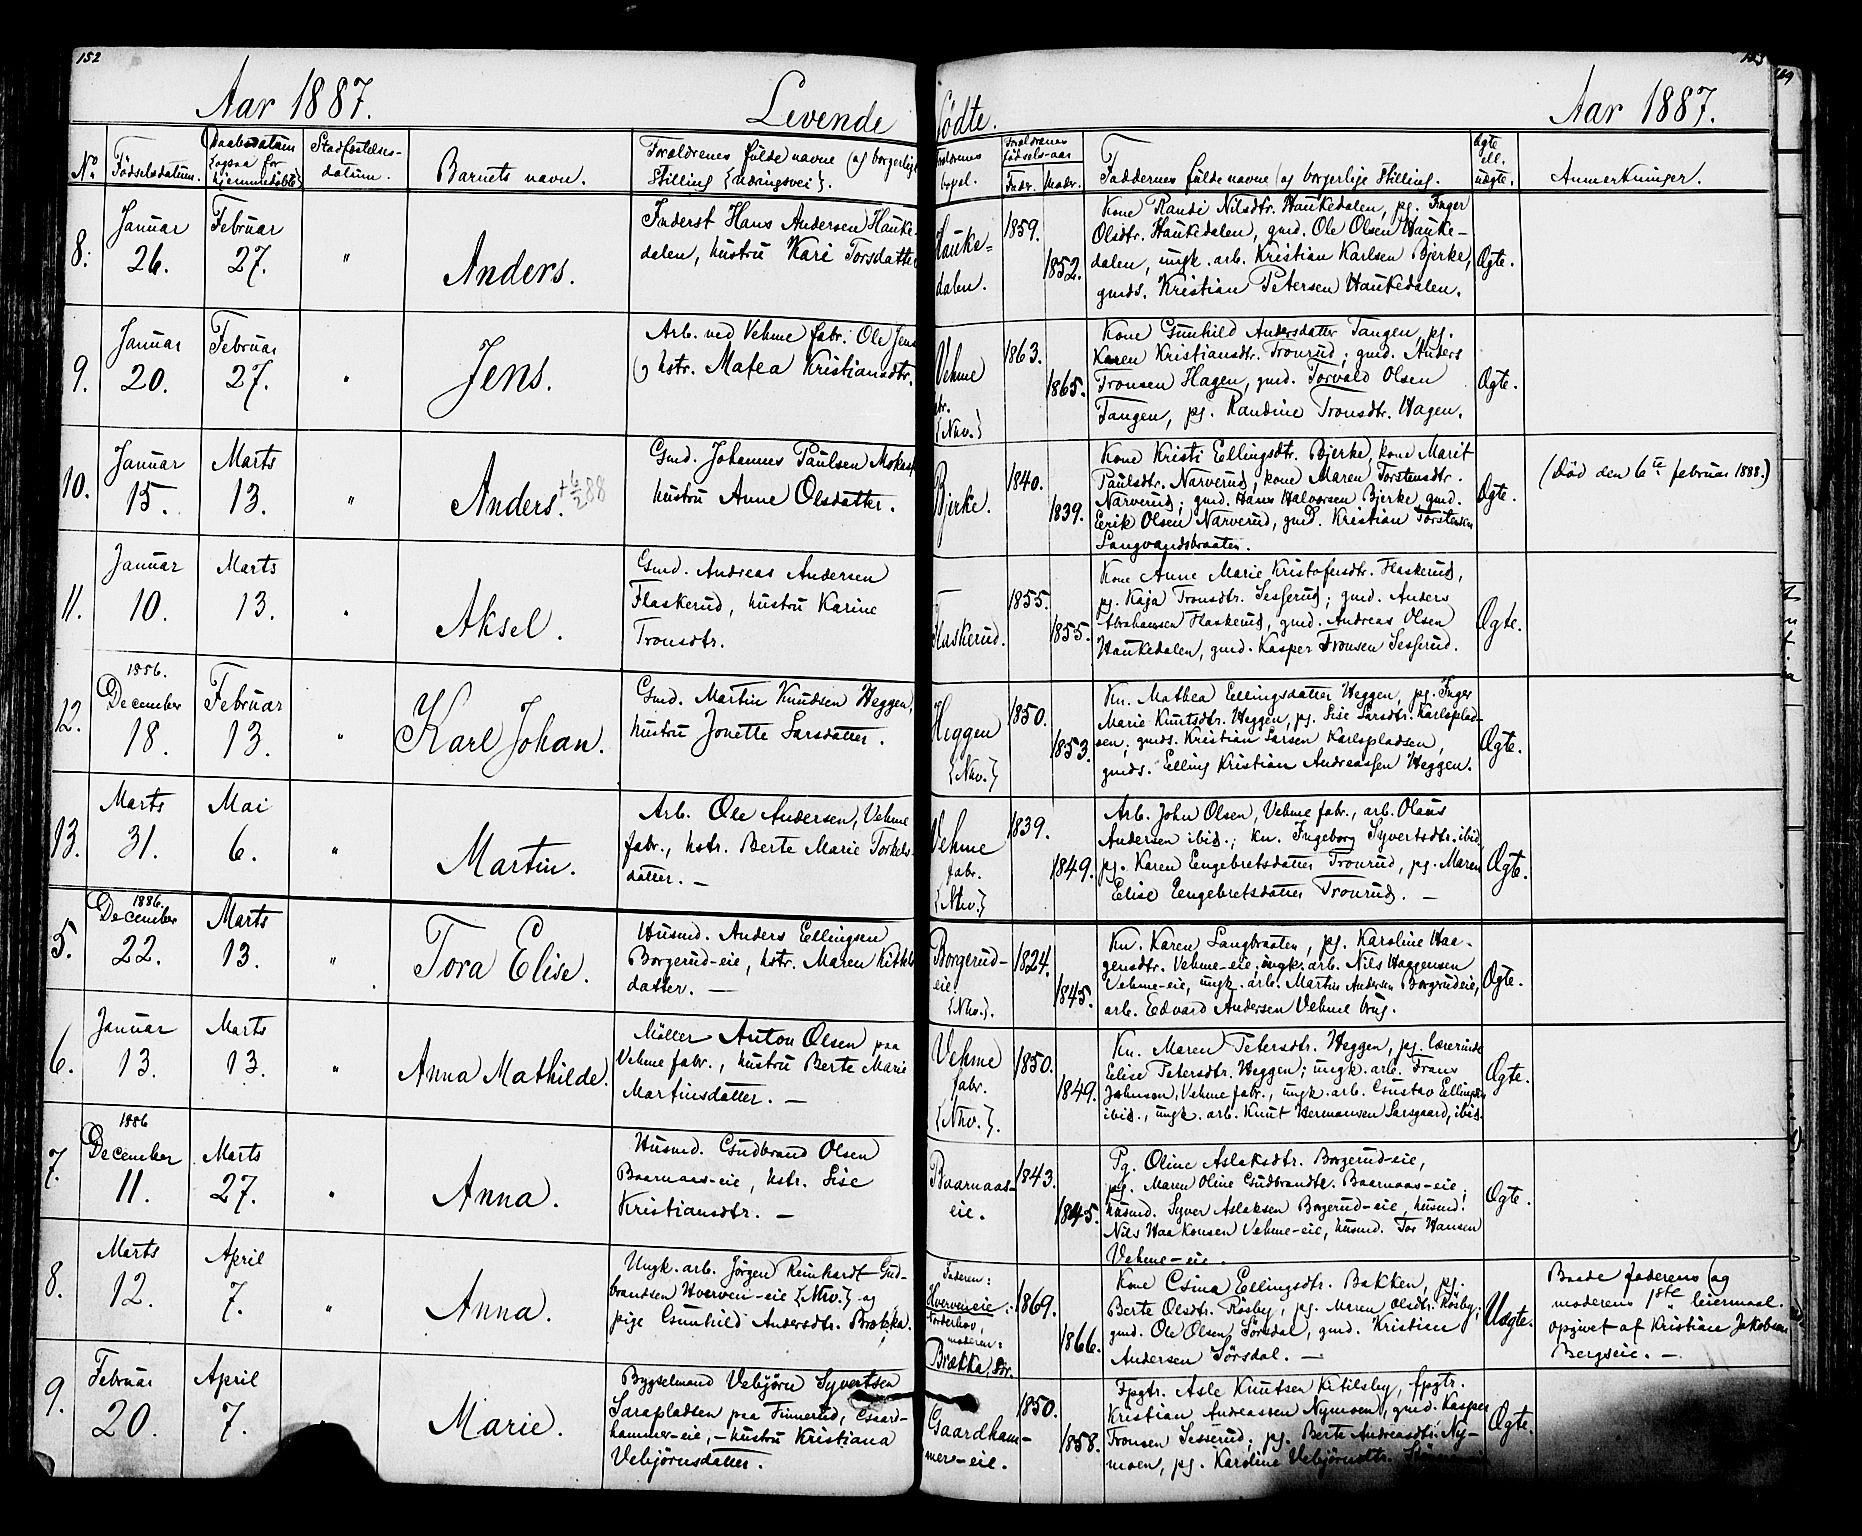 152
153
Aar 1887.
Levende
Fødte.
Aar 1887.
No
Fødselsdatum.
Daabsdatum
(ogsaa for
hjemmedøbte)
Stadfæstelses-
datum.
Barnets navn.
Forældrenes fulde navne (og borgerlige
Stilling {næringsvei}.
bopæl.
Forældrenes
fødsels-aar
Fadr.
Modr.
Faddernes fulde navne (og borgerlige Stilling.
Ægte
ell.
uægte.
Anmerkninger.
8.
Januar
26.
Februar
27.
"
Anders.
Inderst Hans Andersen Hauke-
dalen, hustru Kari Torsdatter
Hauke-
dalen.
1859.
1852.
Kone Randi Nilsdtr. Haukedalen, pg. Inger
Olsdtr. Haukedalen, gmd. Ole Olsen Hauke-
dalen, ungk. arb. Kristian Karlsen Bjerke,
gmds. Kristian Petersen Haukedalen.
Ægte.
9.
Januar
20.
Februar
27.
"
Jens.
Arb. ved Vehme fabr. Ole Jens
hstr. Matea Kristiansdtr.
Vehme
{Nhv.}
1863.
1865.
Kone Gunhild Andersdatter Tangen, pg.
Karen Kristiansdtr. Tronrud; gmd. Anders
Tronsen Hagen, gmd. Torvald Olsen
Tangen, pg. Randine Tronsdtr. Hagen.
Ægte.
10.
Januar
15.
Marts
13.
"
Anders. + 6/2 88
Gmd. Johannes Paulsen
hustru Anne Olsdatter.
Bjerke.
1840.
1839.
Kone Kristi Ellingsdtr. Bjerke, kone Marit
Paulsdtr. Narverud; kone Maren Torstensdtr.
Narverud; gmd. Hans Halvorsen Bjerke, gmd.
Eerik Olsen Narverud, gmd. Kristian Torstensen
Langvandsbraaten.
Ægte.
(Død den 6te februar 1888.)
11.
Januar
10.
Marts
13.
"
Aksel.
Gmd. Andreas Andersen
Flaskerud, hustru Karine
Tronsdtr.
Flaskerud.
1855.
1855.
Kone Anne Marie Kristofersdtr. Flaskerud,
pg. Kaja Tronsdtr. Sesserud; gmd. Anders
Abrahamsen Flaskerud, gmd. Andreas Olsen
Haukedalen, gmd. Kasper Tronsen Sesserud.
Ægte.
12.
1856.
December
18.
Februar
13.
"
Karl Johan.
Gmd. Martin Knudsen Heggen,
hustru Jonette Larsdatter.
Heggen
{Nhv.}
1850.
1853.
Kn. Mathea Ellingsdatter Heggen, pg. Inger
Marie Knutsdtr. Heggen, pg. Lise Larsdtr. Karlsplad-
sen; gmds. Kristian Larsen Karlspladsen,
gmds. Elling Kristian Andreassen Heggen.
Ægte.
13.
Marts
31.
Mai
6.
"
Martin.
Arb. Ole Andersen, Vehme
fabr., hstr. Berte Marie Torkels-
datter. —
Vehme
fabr.
{Nhv.}
1839.
1849.
Arb. John Olsen, Vehme fabr., arb. Olaus
Andersen ibid.; kn. Ingeborg Syvertsdtr. ibid,
pg. Karen Eengebretsdatter Tronrud, pg. Maren
Elise Eengebretsdatter Tronrud. —
Ægte.
5.
1886.
December
22.
Marts
13.
"
Tora Elise.
Husmd. Anders Eellingsen
Borgerud-eie, hstr. Maren Kittels
datter. —
Borgerud-
eie
{Nhv.}.
1824.
1845.
Kn. Karen Langbraaten, pg. Karoline Haa-
gensdtr. Vehme-eie; ungk. arb. Nils Haagensen
Vehme-eie, ungk. arb. Martin Andersen Borgerudeie,
arb. Edvard Andersen Vehme brug.
Ægte.
6.
Januar
13.
Marts
13.
"
Anna Mathilde.
Møller Anton Olsen paa
Vehme fabr., hustru Berte Marie
Martinsdatter. —
Vehme
fabr.
{Nhv.}.
1850.
1849.
Kn. Maren Petersdtr. Heggen, pg. lærerinde
Elise Petersdtr. Heggen; ungk. arb. Frans
Johnsen, Vehme fabr., ungk. arb. Gustav Ellingsen
ibid., ungk. arb. Knut Hermansen Larsgaard, ibid.
Ægte.
7.
1886
December
11.
Marts
27.
"
Anna.
Husmd. Gudbrand Olsen
Baarnaas-eie, hstr. Lise
Kristiansdtr. —
Baarnaas-
eie.
1843.
1845.
Pg. Oline Aslaksdtr. Borgerud-eie,
pg. Maren Oline Gudbrandtr. Baarnaas-eie;
husmd. Syver Aslaksen Borgerud-eie, husmd.
Nils Haakonsen Vehme-eie, husmd. Tor Hansen
Vehme-eie.
Ægte.
8.
Marts
12.
April
7.
"
Anna.
Ungk. arb. Jørgen Reinhardt Gud-
brandsen Hverven-eie {Nhv.} og
pige Gunhild Andersdtr. Brækka.
Faderen:
Hverveneie
Norderhov,
moderen:
Brækka,
1869.
1866.
Kone Gina Ellingsdtr. Bakken, pg.
Berte Olsdtr. Røsby, pg. Maren Olsdtr. Røsby;
gmd. Ole Olsen Sørsdal, gmd. Kristian
Andersen Sørsdal. —
Uægte.
Baade faderens (og
moderens 1ste leiermaal.
opgivet af Kristian Jakobsen
Bergseie. —
9.
Februar
20.
April
7.
Marie.
Bygselmand Vebjørn Syvertsen
Sarapladsen paa Finnerud, Gaard-
hammer-eie, — hustru Kristiana
Vebjørnsdatter.
Gaardham-
mer-eie.
1850.
1858.
Fpgtr. Asle Knutsen Ketilsby, fpgtr.
Kristian Andreassen Nymoen, gmd. Kasper
Tronsen Sesserud; pg. Berte Andreasdtr. Ny-
moen, pg. Karoline Vebjørnsdtr.
Ægte.